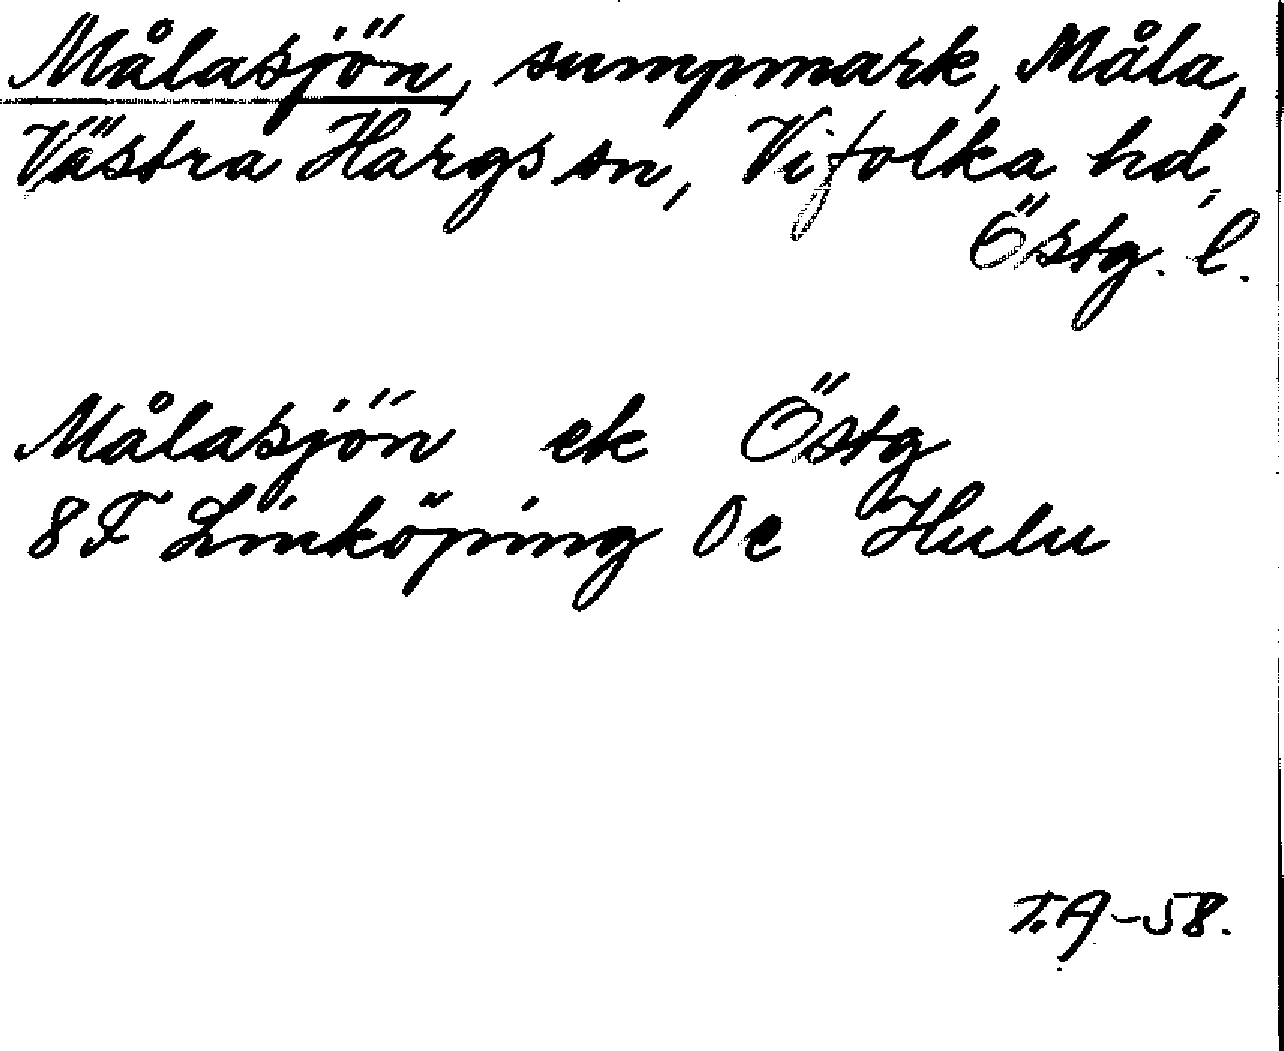 Målasjön, sumpmark, Måla,
Västra Hargs sn, Vifolka hd,
Östg. l.
Målasjön ek Östg
8F Linköping 0e Hulu
T.A-58.